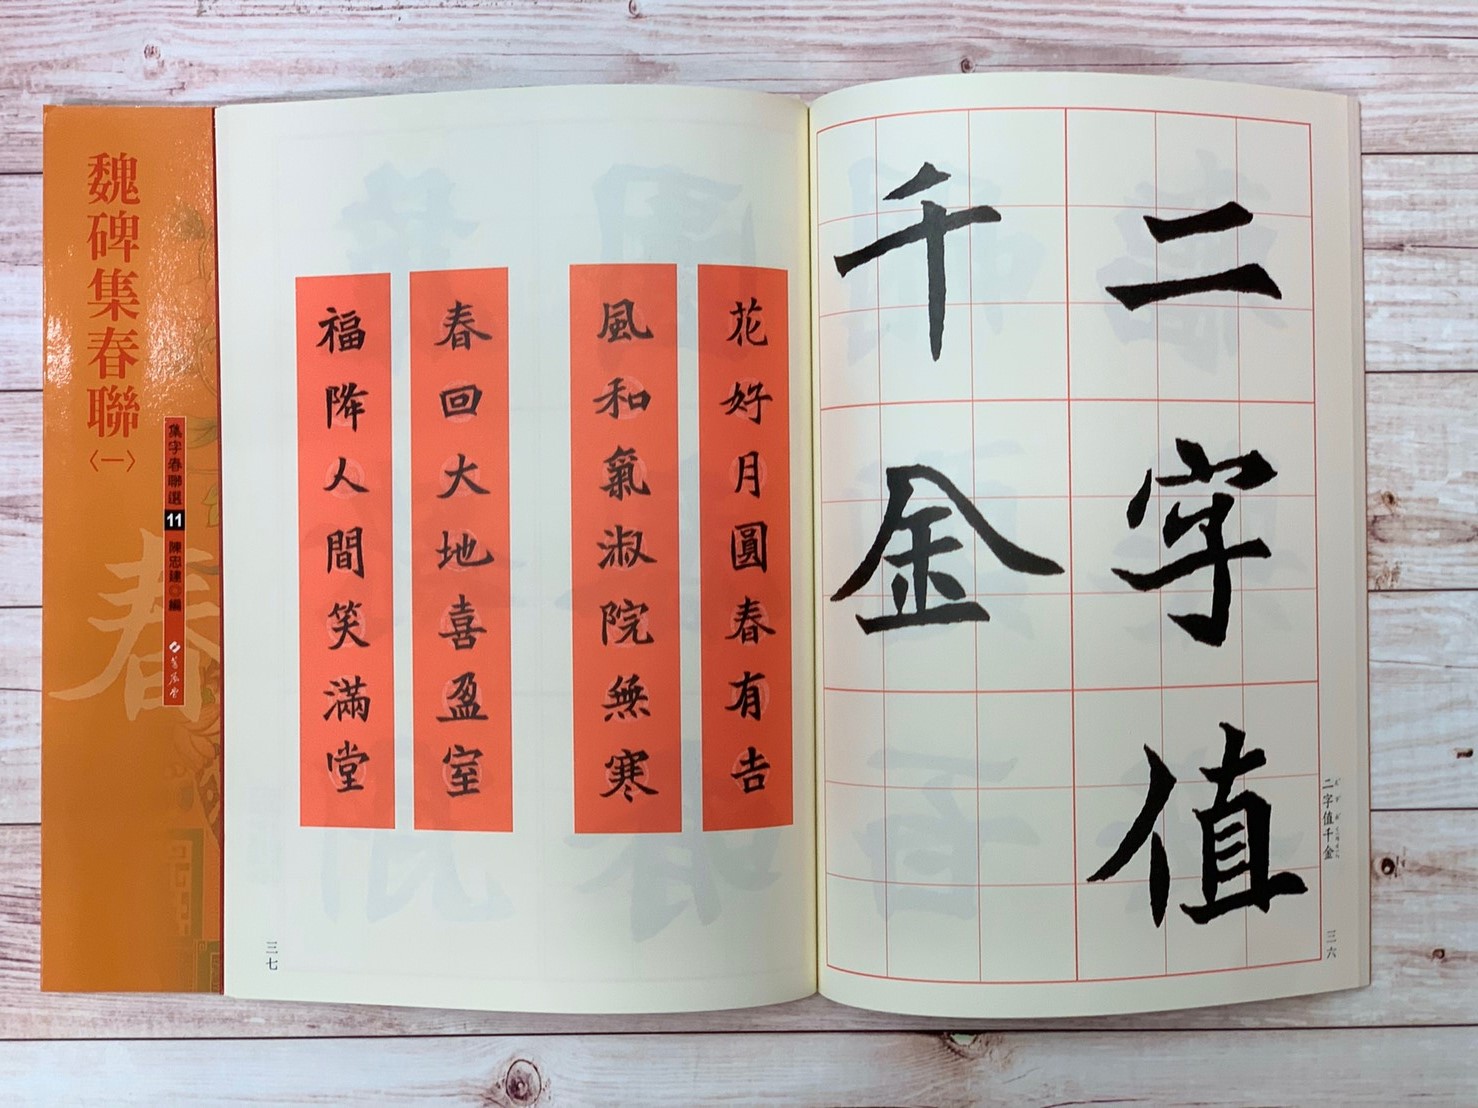 二字值
千金
二字值千金
三六
花好月圓春有吉
風和氣淑院無寒
春回大地喜盈室
福降人間笑滿堂
三七
魏碑集春聯〈一〉
集字春聯選 11 陳忠建◎編
蕙風堂
春